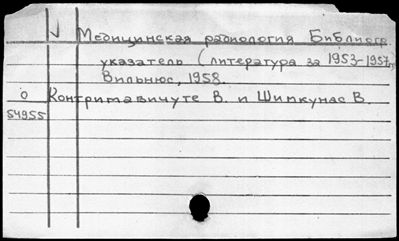 √ Медицинская радиология Библиогр.
указатель (литература за 1953-1957гг
Вильнюс, 1958.
О Контримавичуте В. и Шипкунас В.
54955